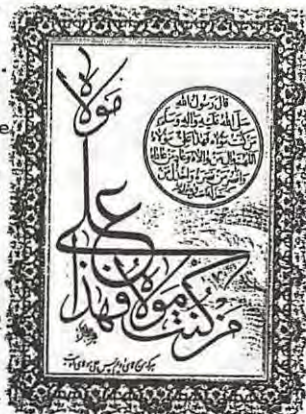 قال رسول الله
صلى الله عليه وآله وسلم
من كنت مولاه فهذا علي مولاه
اللهم وال من والاه وعاد من عاداه
وانصر من نصره واخذل من
من كنت مولاه فهذا علي مولاه